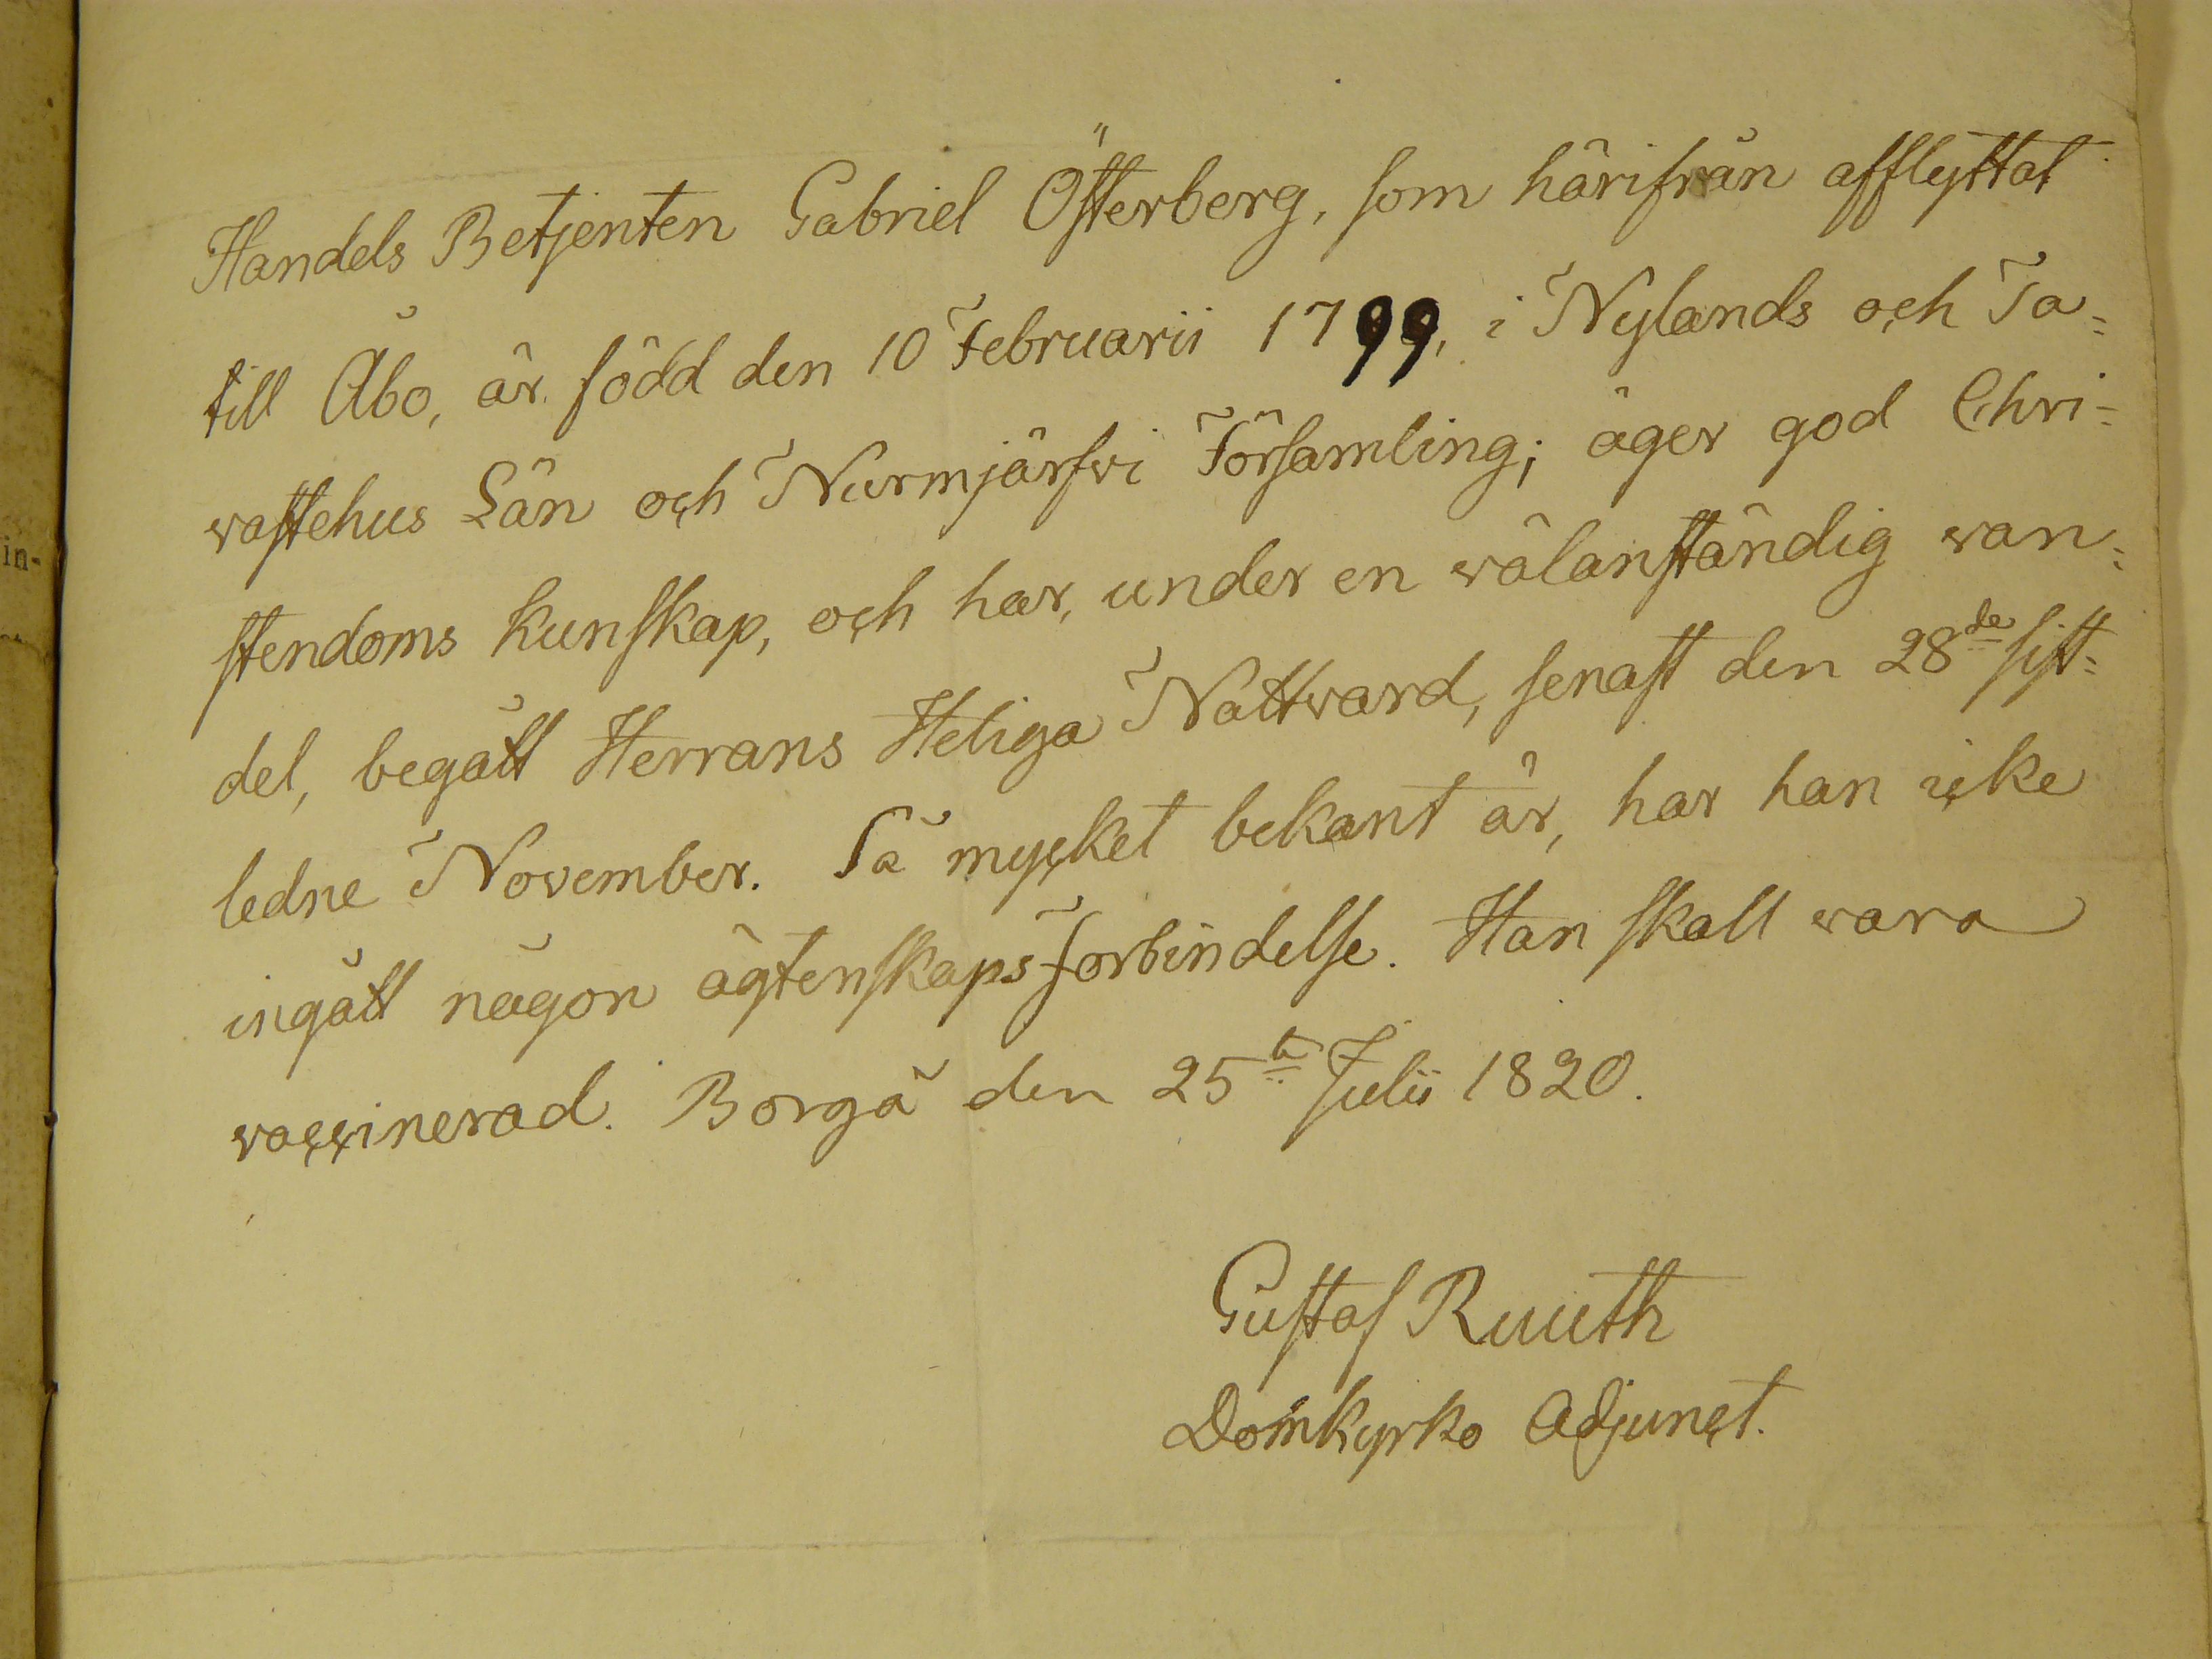 Handels Betjenten Gabriel Österberg, som härifrån afflyttat
till Åbo, är född den 10 Februarii 1799, i Nylands och Ta=
vastehus Län och Nurmjärfvi Församling; äger god Chri=
stendoms kunskap, och har, under en välanständig van=
del, begått Herrans Heliga Nattvard, senast den 28de sist=
ledne November. Så mycket bekant är, har han icke
ingått någon ägtenskapsförbindelse. Han skall vara
vaccinerad. Borgå den 25te Julii 1820.
Gustaf Ruuth
Domkyrko Adjunct.
in-